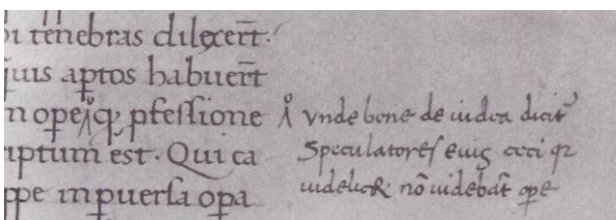 bi tenebras dilexer̄t·
quis ap̱tos habuer̄t
n ope
p̱fessione
iptum est· Qui ca
ppe inp̱uersa op̱a
vnde bene de iudea dicit᷑
Speculatores eius ceci
nō uidebāt op̱e